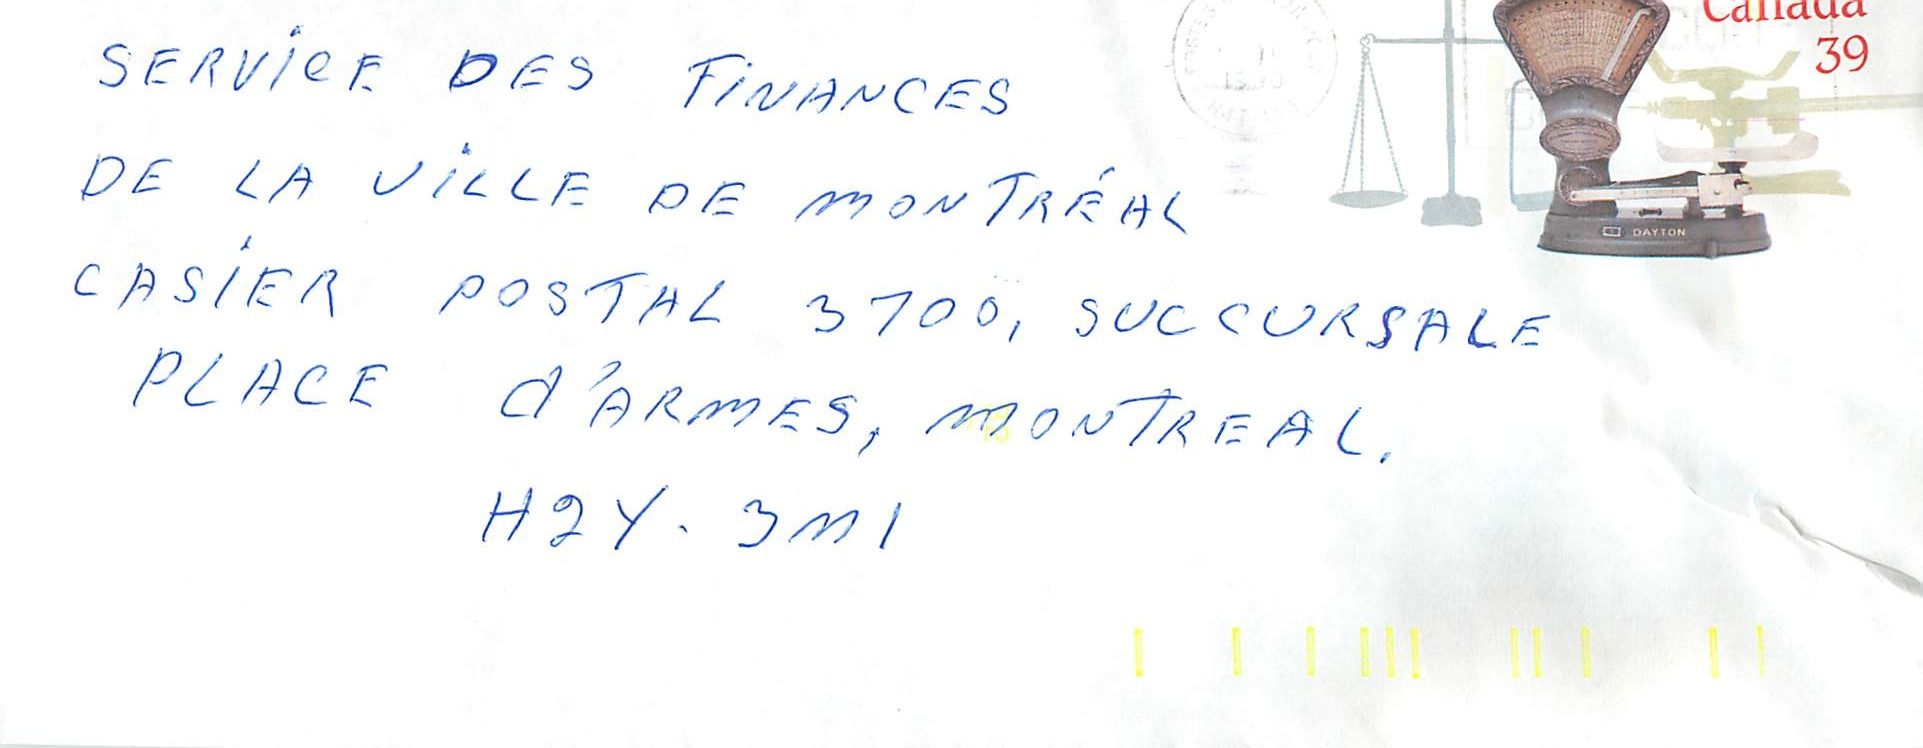 Canada
39
DAYTON
SERVICE DES FINANCES
DE LA VILLE DE MONTRÉAL
CASIER POSTAL 3700, SUCCURSALE
PLACE d'ARMES, MONTREAL.
H2Y. 3M1